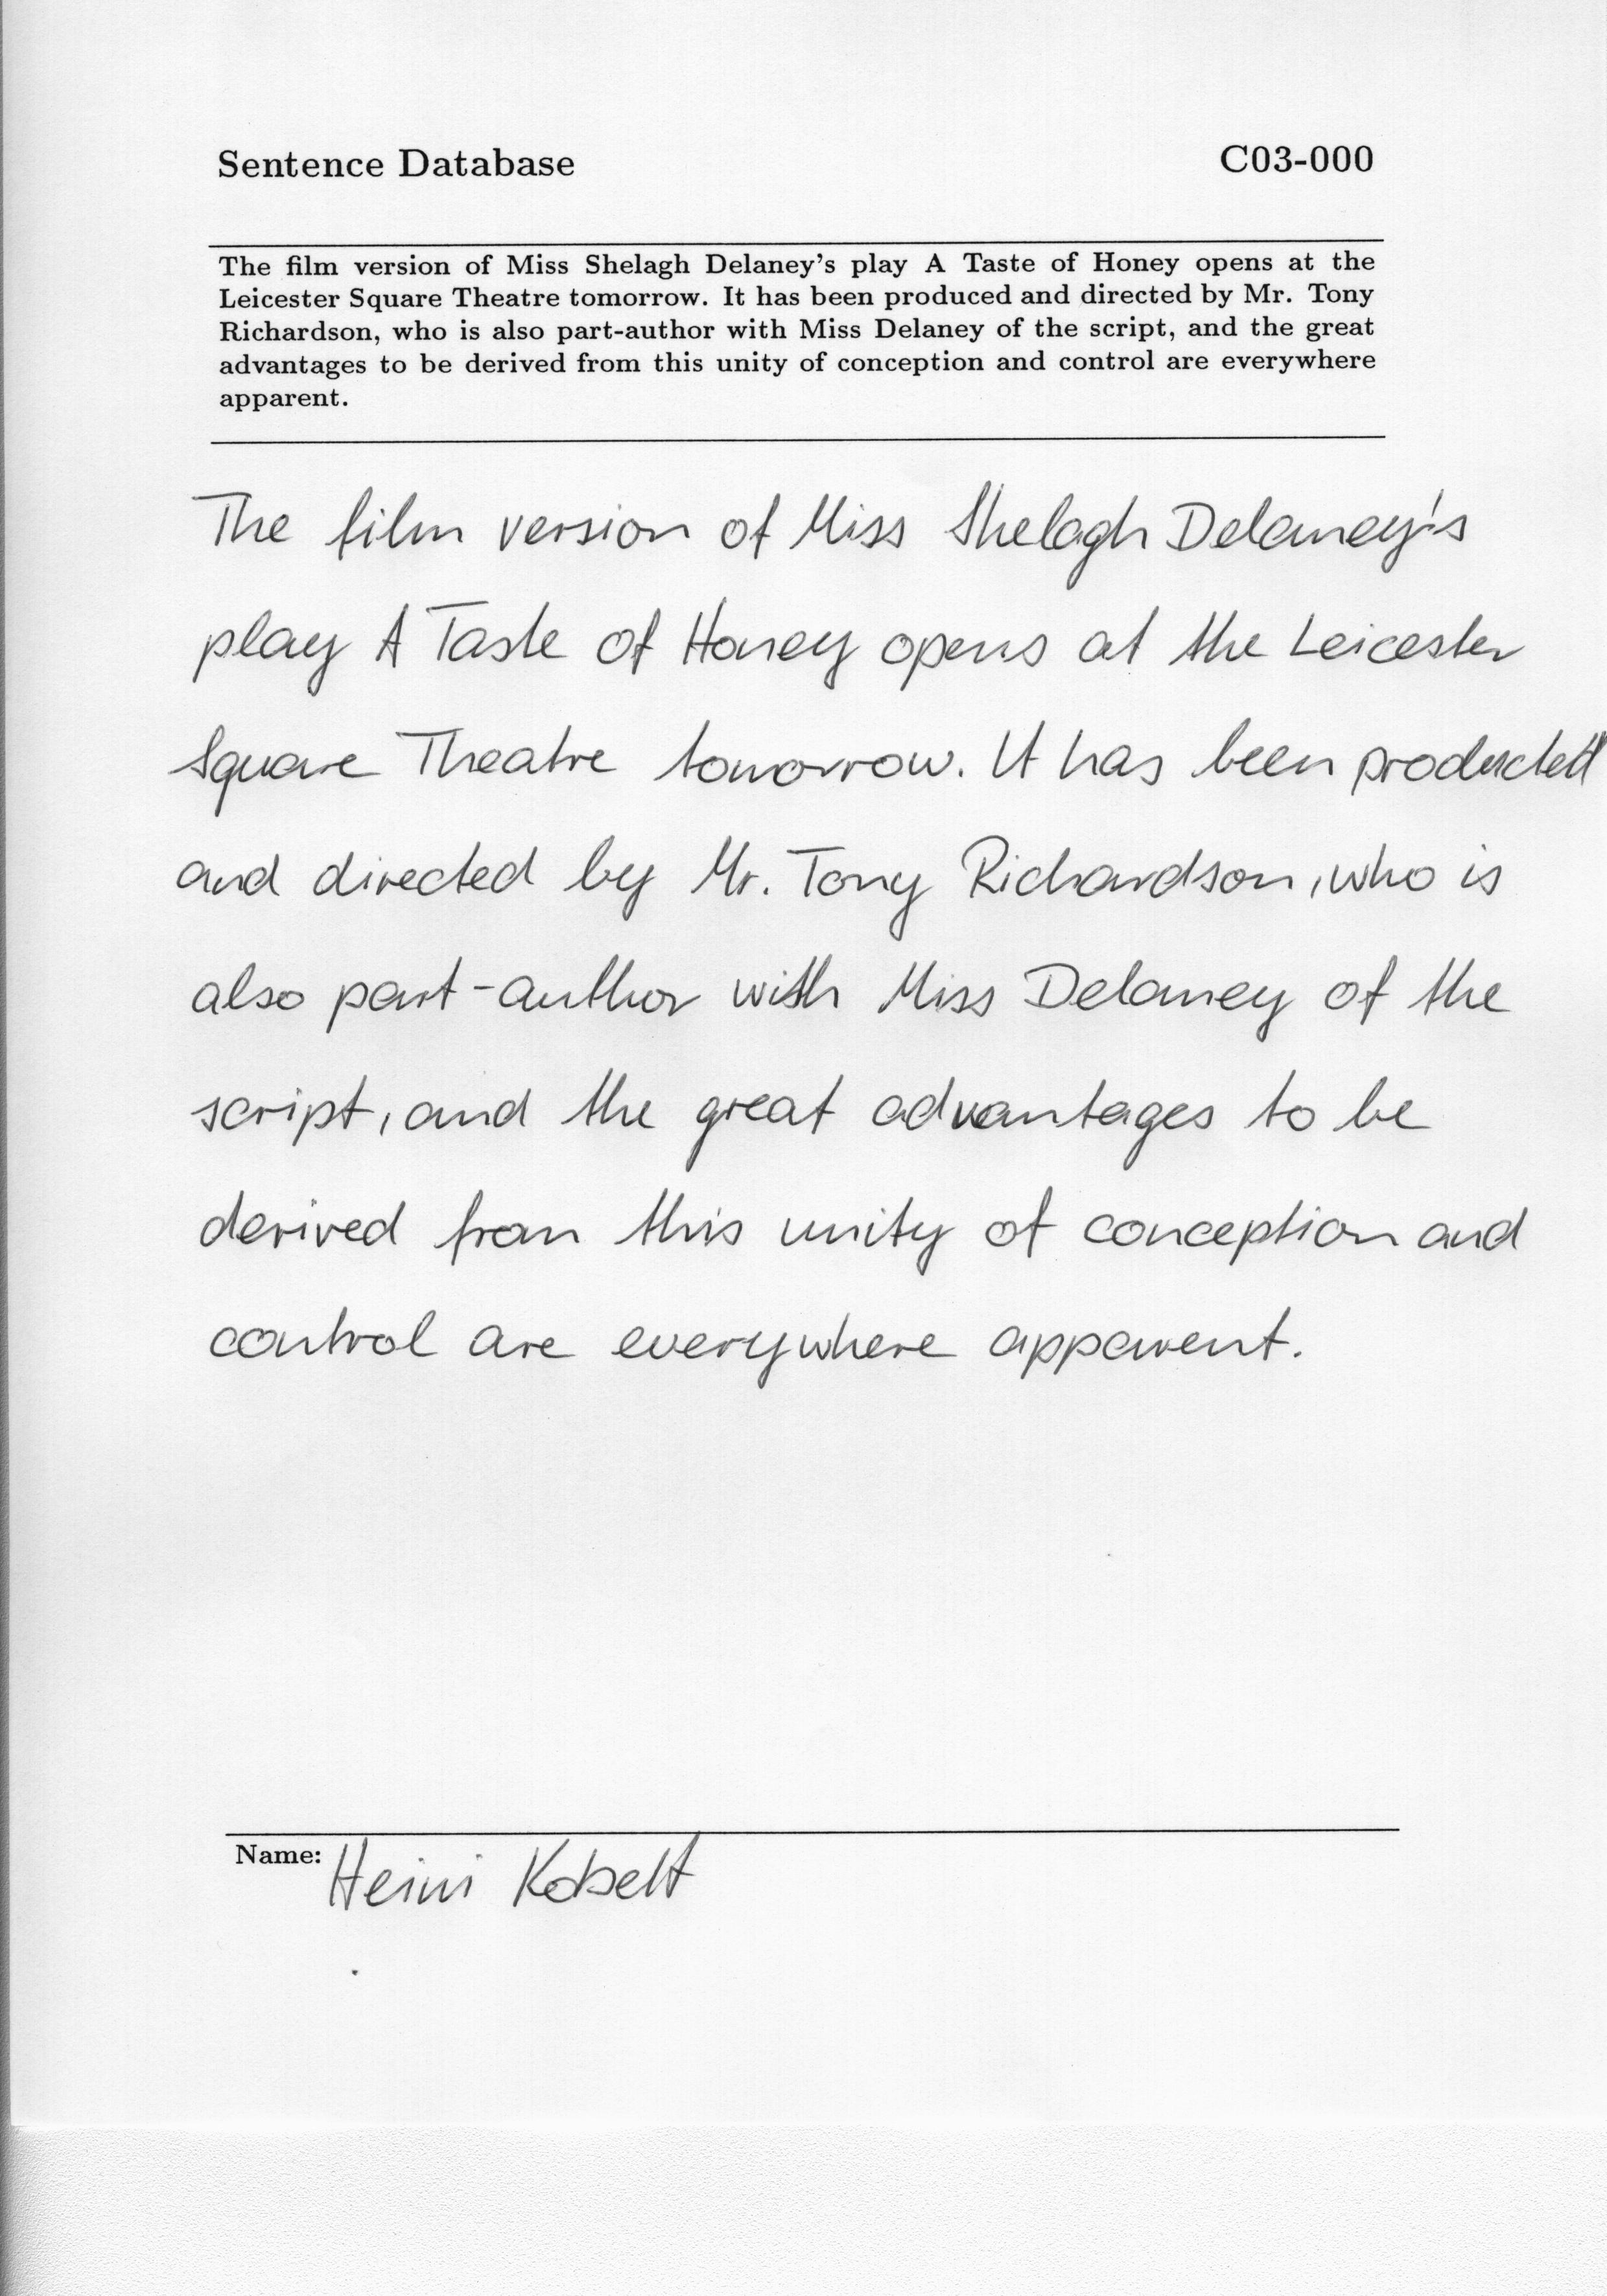 Sentence Database C03-000
The film version of Miss Shelagh Delaney's play A Taste of Honey opens at the
Leicester Square Theatre tomorrow. It has been produced and directed by Mr. Tony
Richardson, who is also part-author with Miss Delaney of the script, and the great
advantages to be derived from this unity of conception and control are everywhere
apparent.
The film version of Miss Shelagh Delaney's
play A Taste of Honey opens at the Leicester
Square Theatre tomorrow. It has been producted
and directed by Mr. Tony Richardson, who is
also part-author with Miss Delaney of the
script, and the great advantages to be
derived from this unity of conception and
control are everywhere apparent.
Name: Heini Kobelt